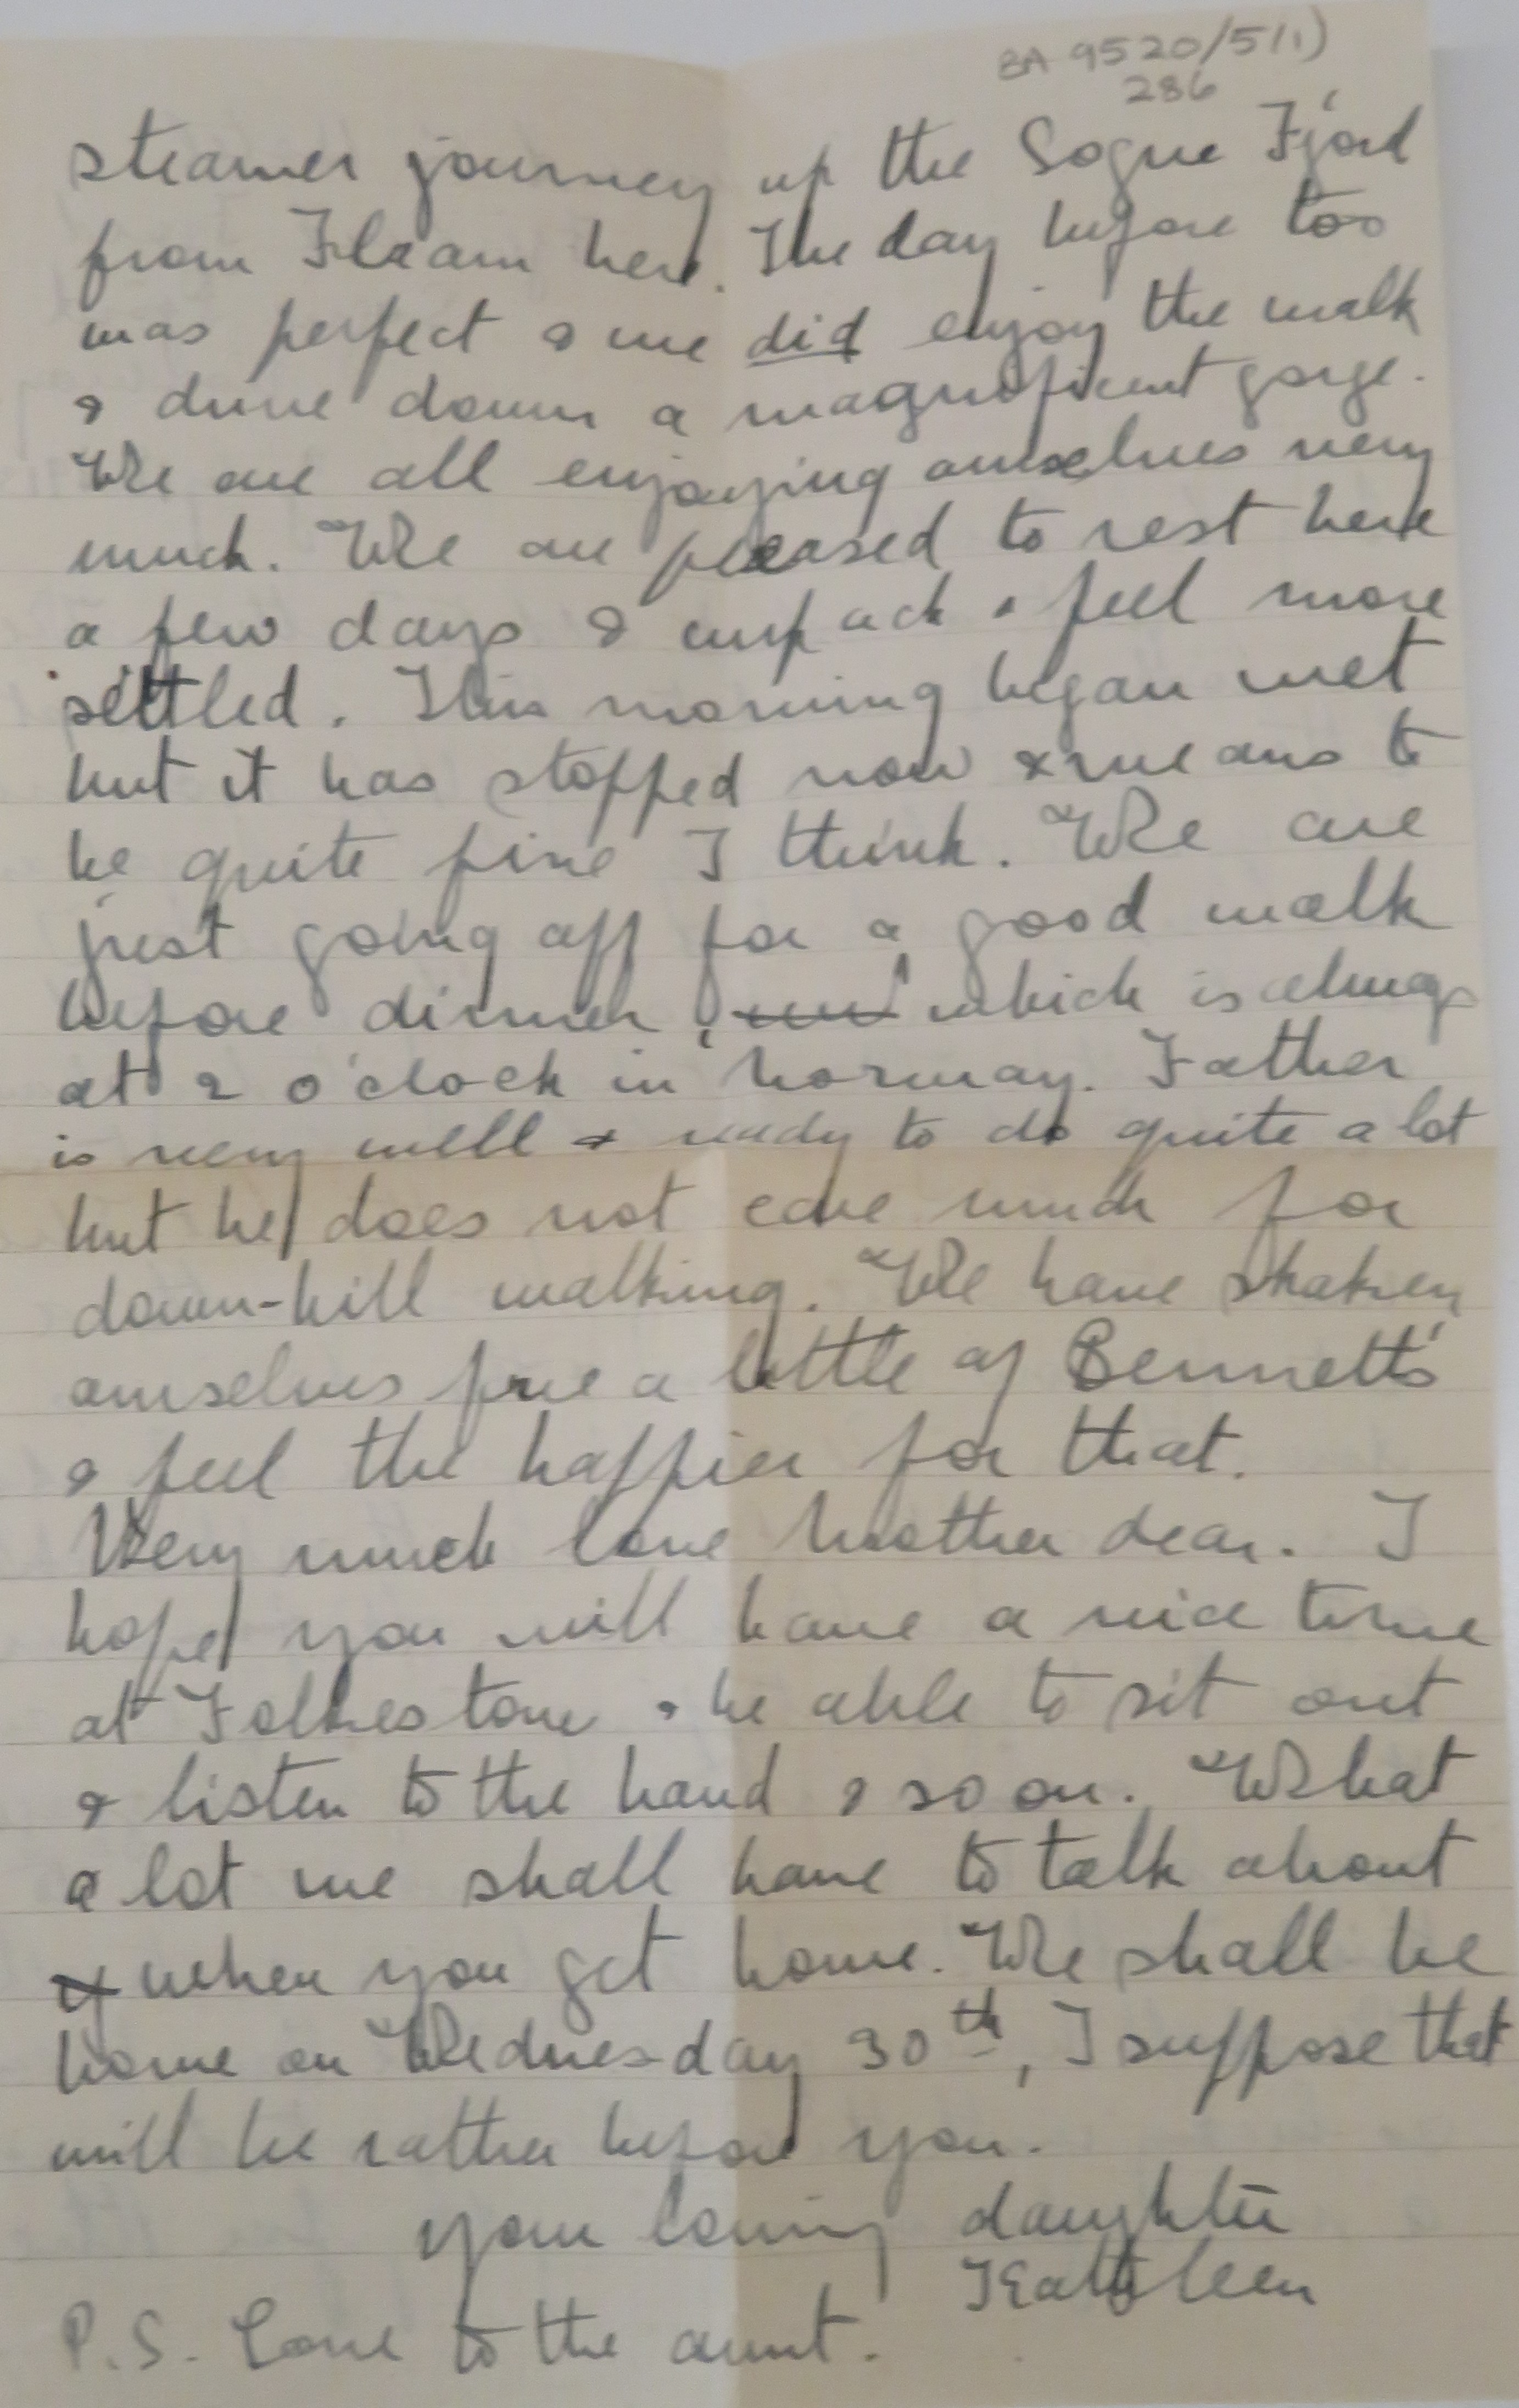 BA 9520/5(1)
286
steamer journey up the Sogne Fjord
from Flaam here. The day before too
was perfect & we did enjoy the walk
& drive down a magnificent gorge.
We are all enjoying ourselves very
much. We are pleased to rest here
a few days & unpack & feel more
settled. This morning began wet
but it has stopped now & means to
be quite fine I think. We are
just going off for a good walk
before dinner, which is always
at 2 o'clock in Norway. Father
is very well & ready to do quite a lot
but he does not care much for
down-hill walking. We have shaken
ourselves free a little of Bennett's
& feel the happier for that.
Very much love Mother dear. I
hope you will have a nice time
at Folkestone & be able to sit out
& listen to the band & so on. What
a lot we shall have to talk about
& when you get home. We shall be
home on Wednesday 30th, I suppose that
will be rather before you.
your loving daughter
Kathleen
P.S. Love to the aunt.